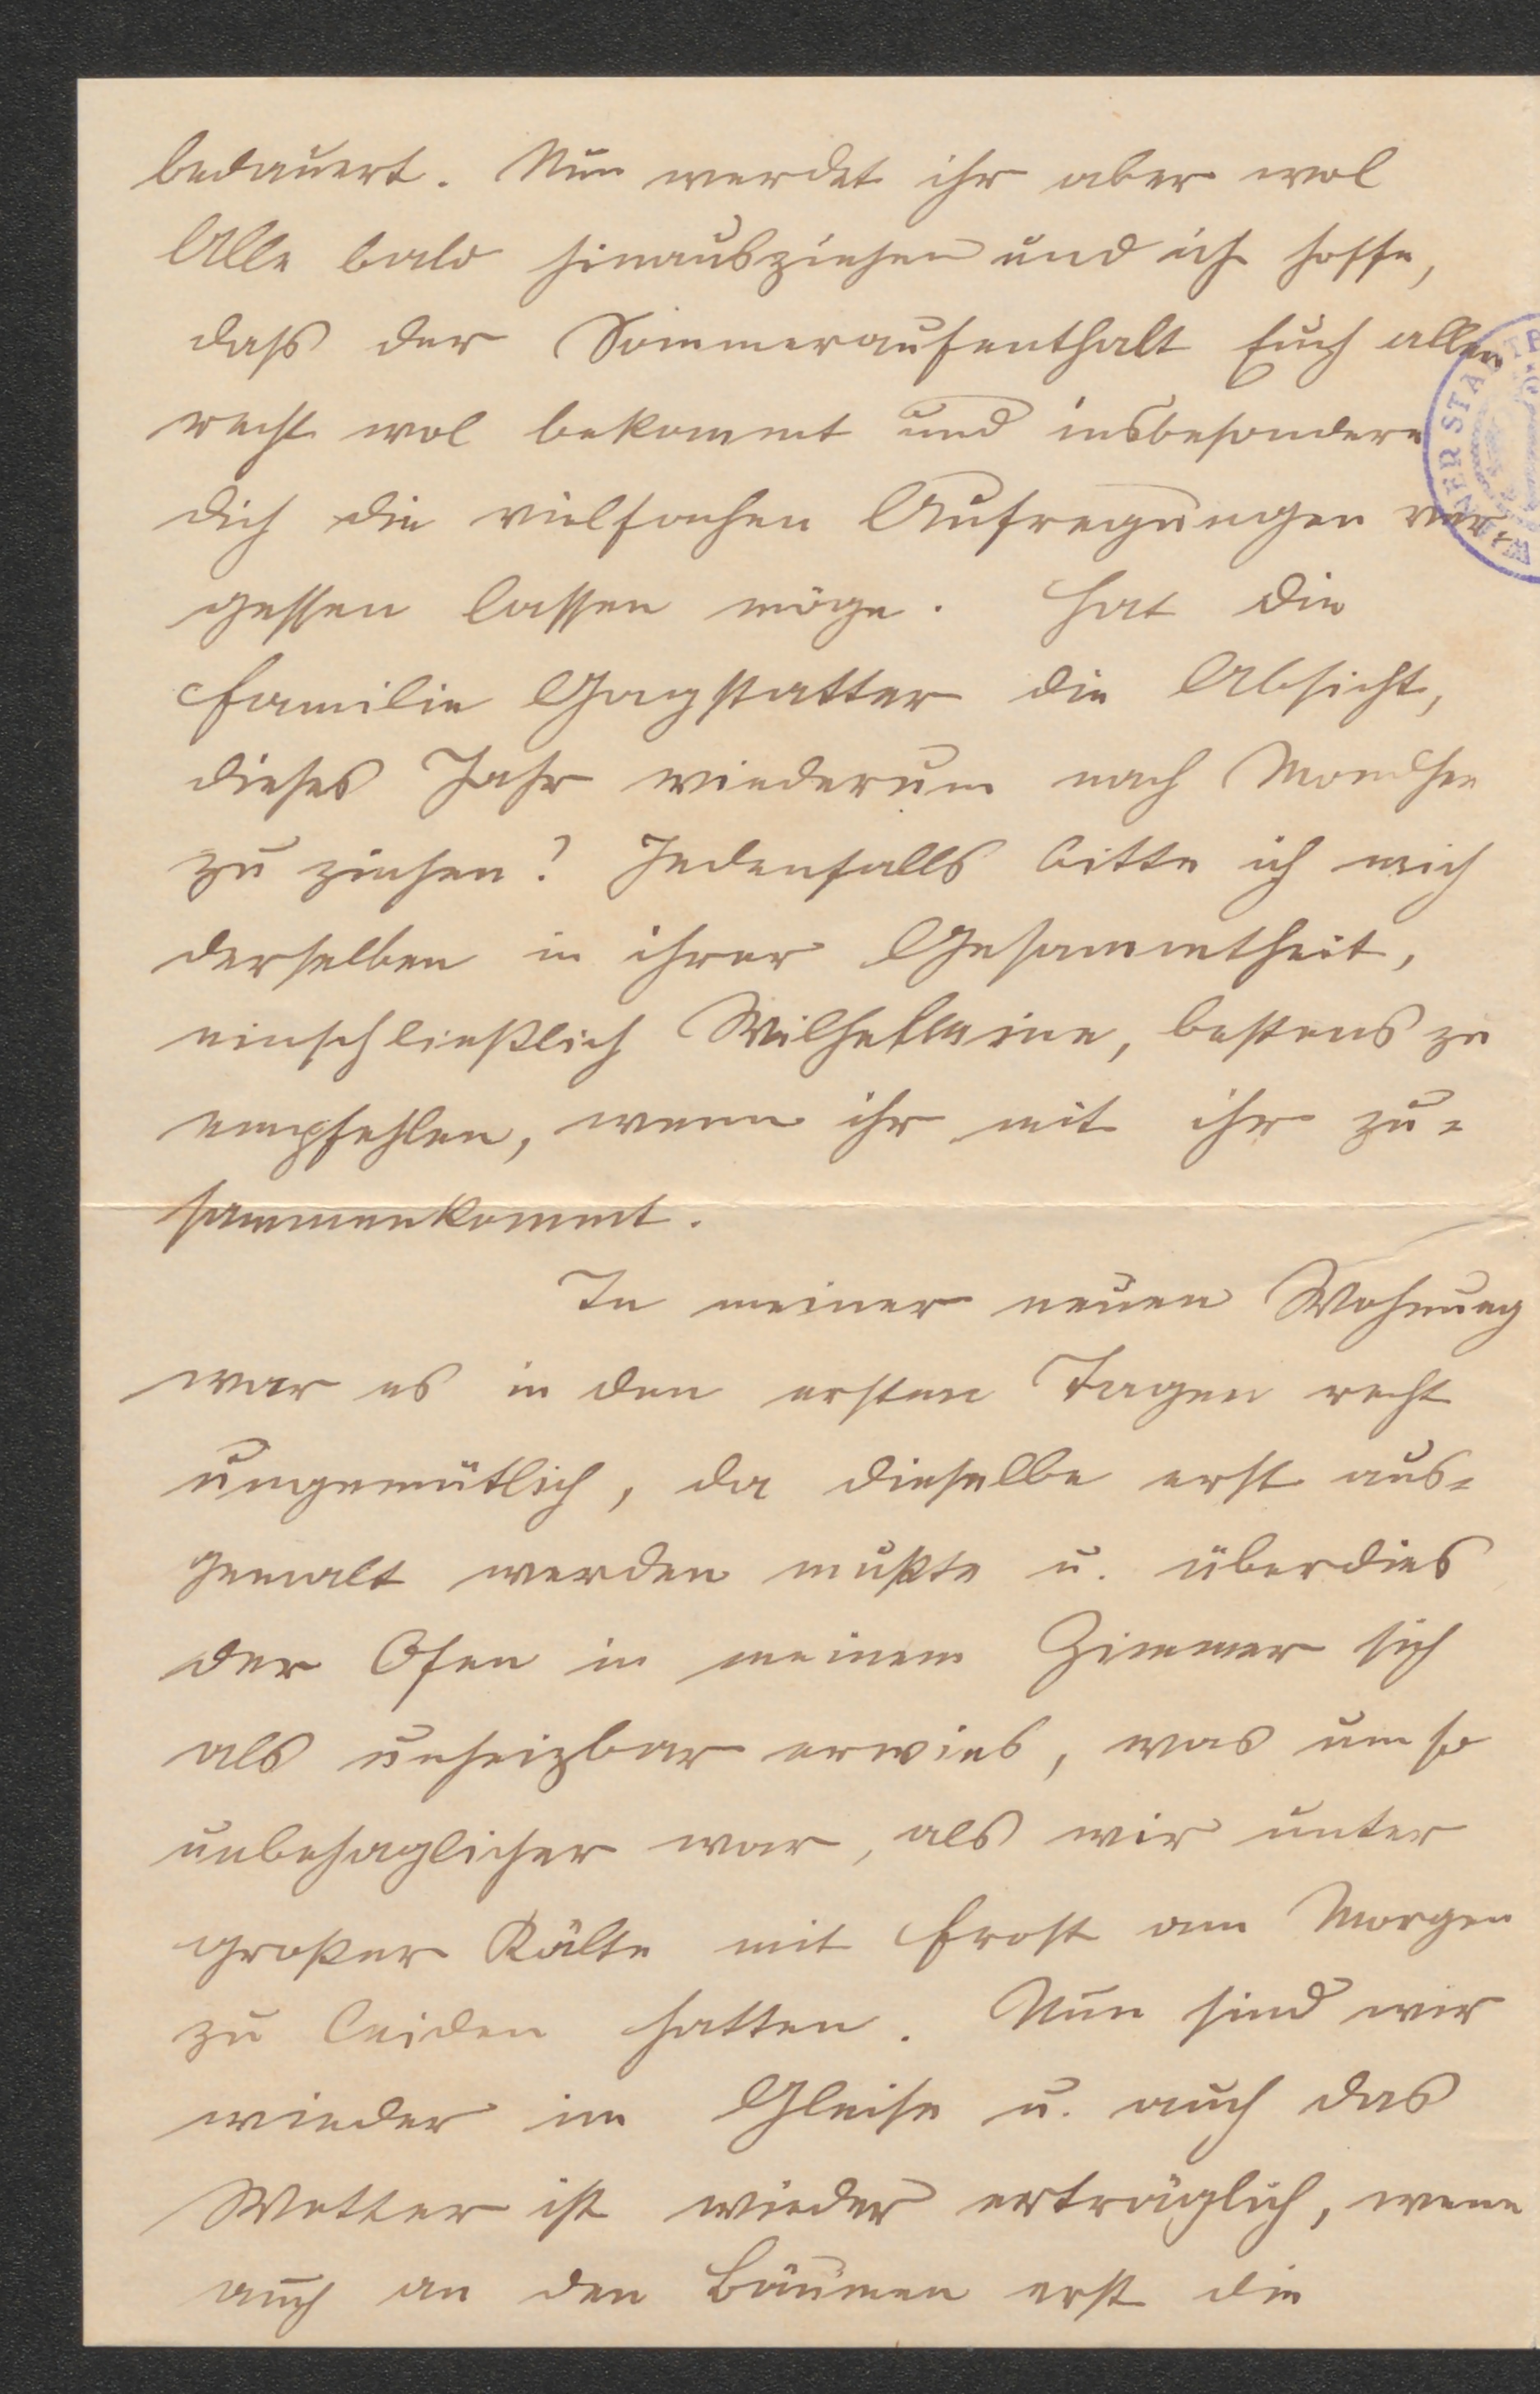 bedauert. Nun werdet ihr aber wol
Alle bald hinausziehen und ich hoffe,
dass der Sommeraufenthalt Euch allen
recht wol bekommt und insbesondere
dich die vielfachen Aufregungen ver-
gessen lassen möge. Hat die
Familie Gagstatter die Absicht,
dieses Jahr wiederum nach Mondsee
zu ziehen? Jedenfalls bitte ich mich
derselben in ihrer Gesammtheit,
einschließlich Wilhelmine, bestens zu
empfehlen, wenn ihr mit ihr zu-
sammenkommt.
In meiner neuen Wohnung
war es in den ersten Tagen recht
ungemütlich, da dieselbe erst aus-
gemalt werden mußte u. überdies
der Ofen in meinem Zimmer sich
als unheizbar erwies, was umso
unbehaglicher war, als wir unter
großer Kälte mit Frost am Morgen
zu leiden hatten. Nun sind wir
wieder im Gleise u. auch das
Wetter ist wieder erträglich, wenn
auch an den Bäumen erst die